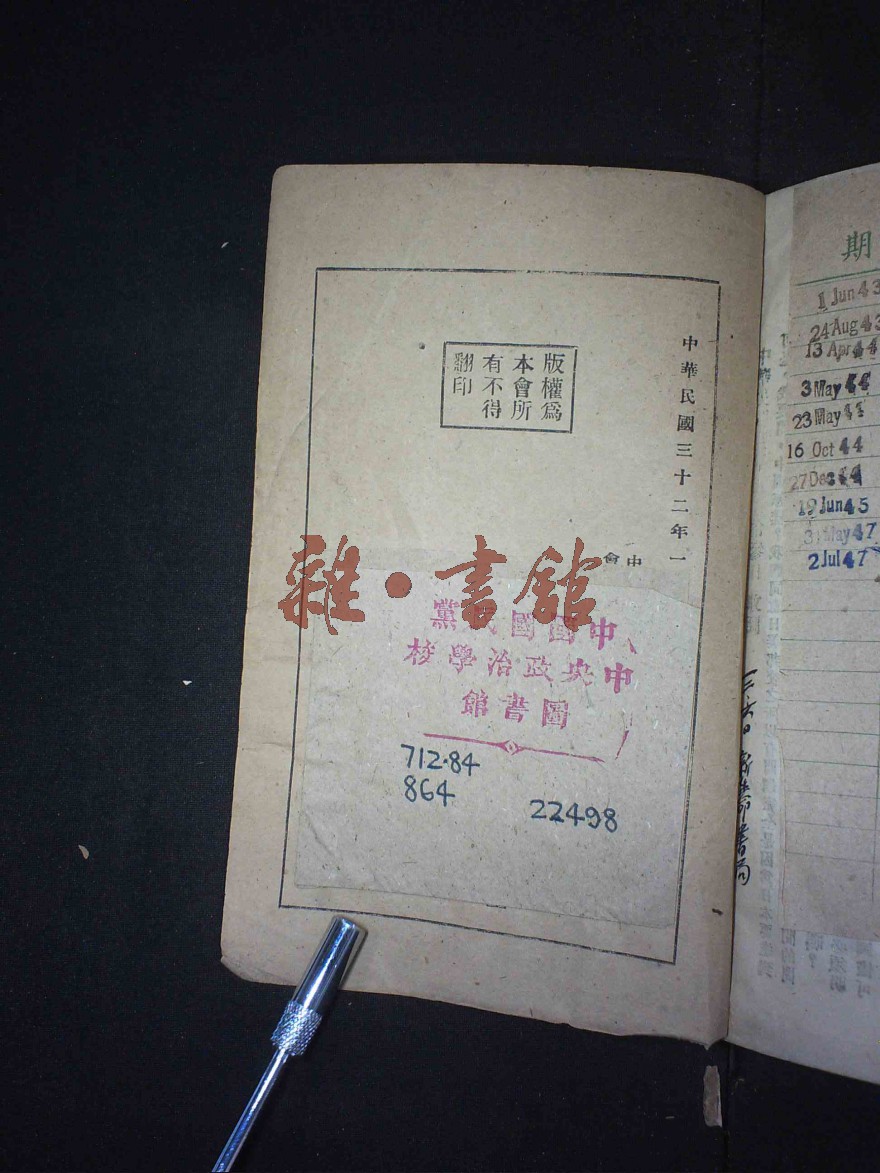 中華民國三十二年一
中
會
版權爲
本會所
有不得
翻印
雜·書館
中國國民黨
中央政治學校
圖書館
712.84
864
22498
期
1 Jun 43
24 Aug 43
13 Apr 44
3 May 44
23 May 44
16 Oct 44
27 Dec 44
19 Jun 45
31 May 47
2 Jul 47